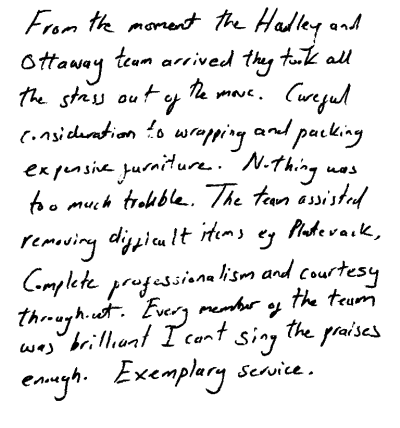 From the moment the Hadley and
Ottaway team arrived they took all
the stress out of the move. Careful
consideration to wrapping and packing
expensive furniture. Nothing was
too much trouble. The team assisted
removing difficult items eg Plate rack,
Complete professionalism and courtesy
throughout. Every member of the team
was brilliant I cant sing the praises
enough. Exemplary service.